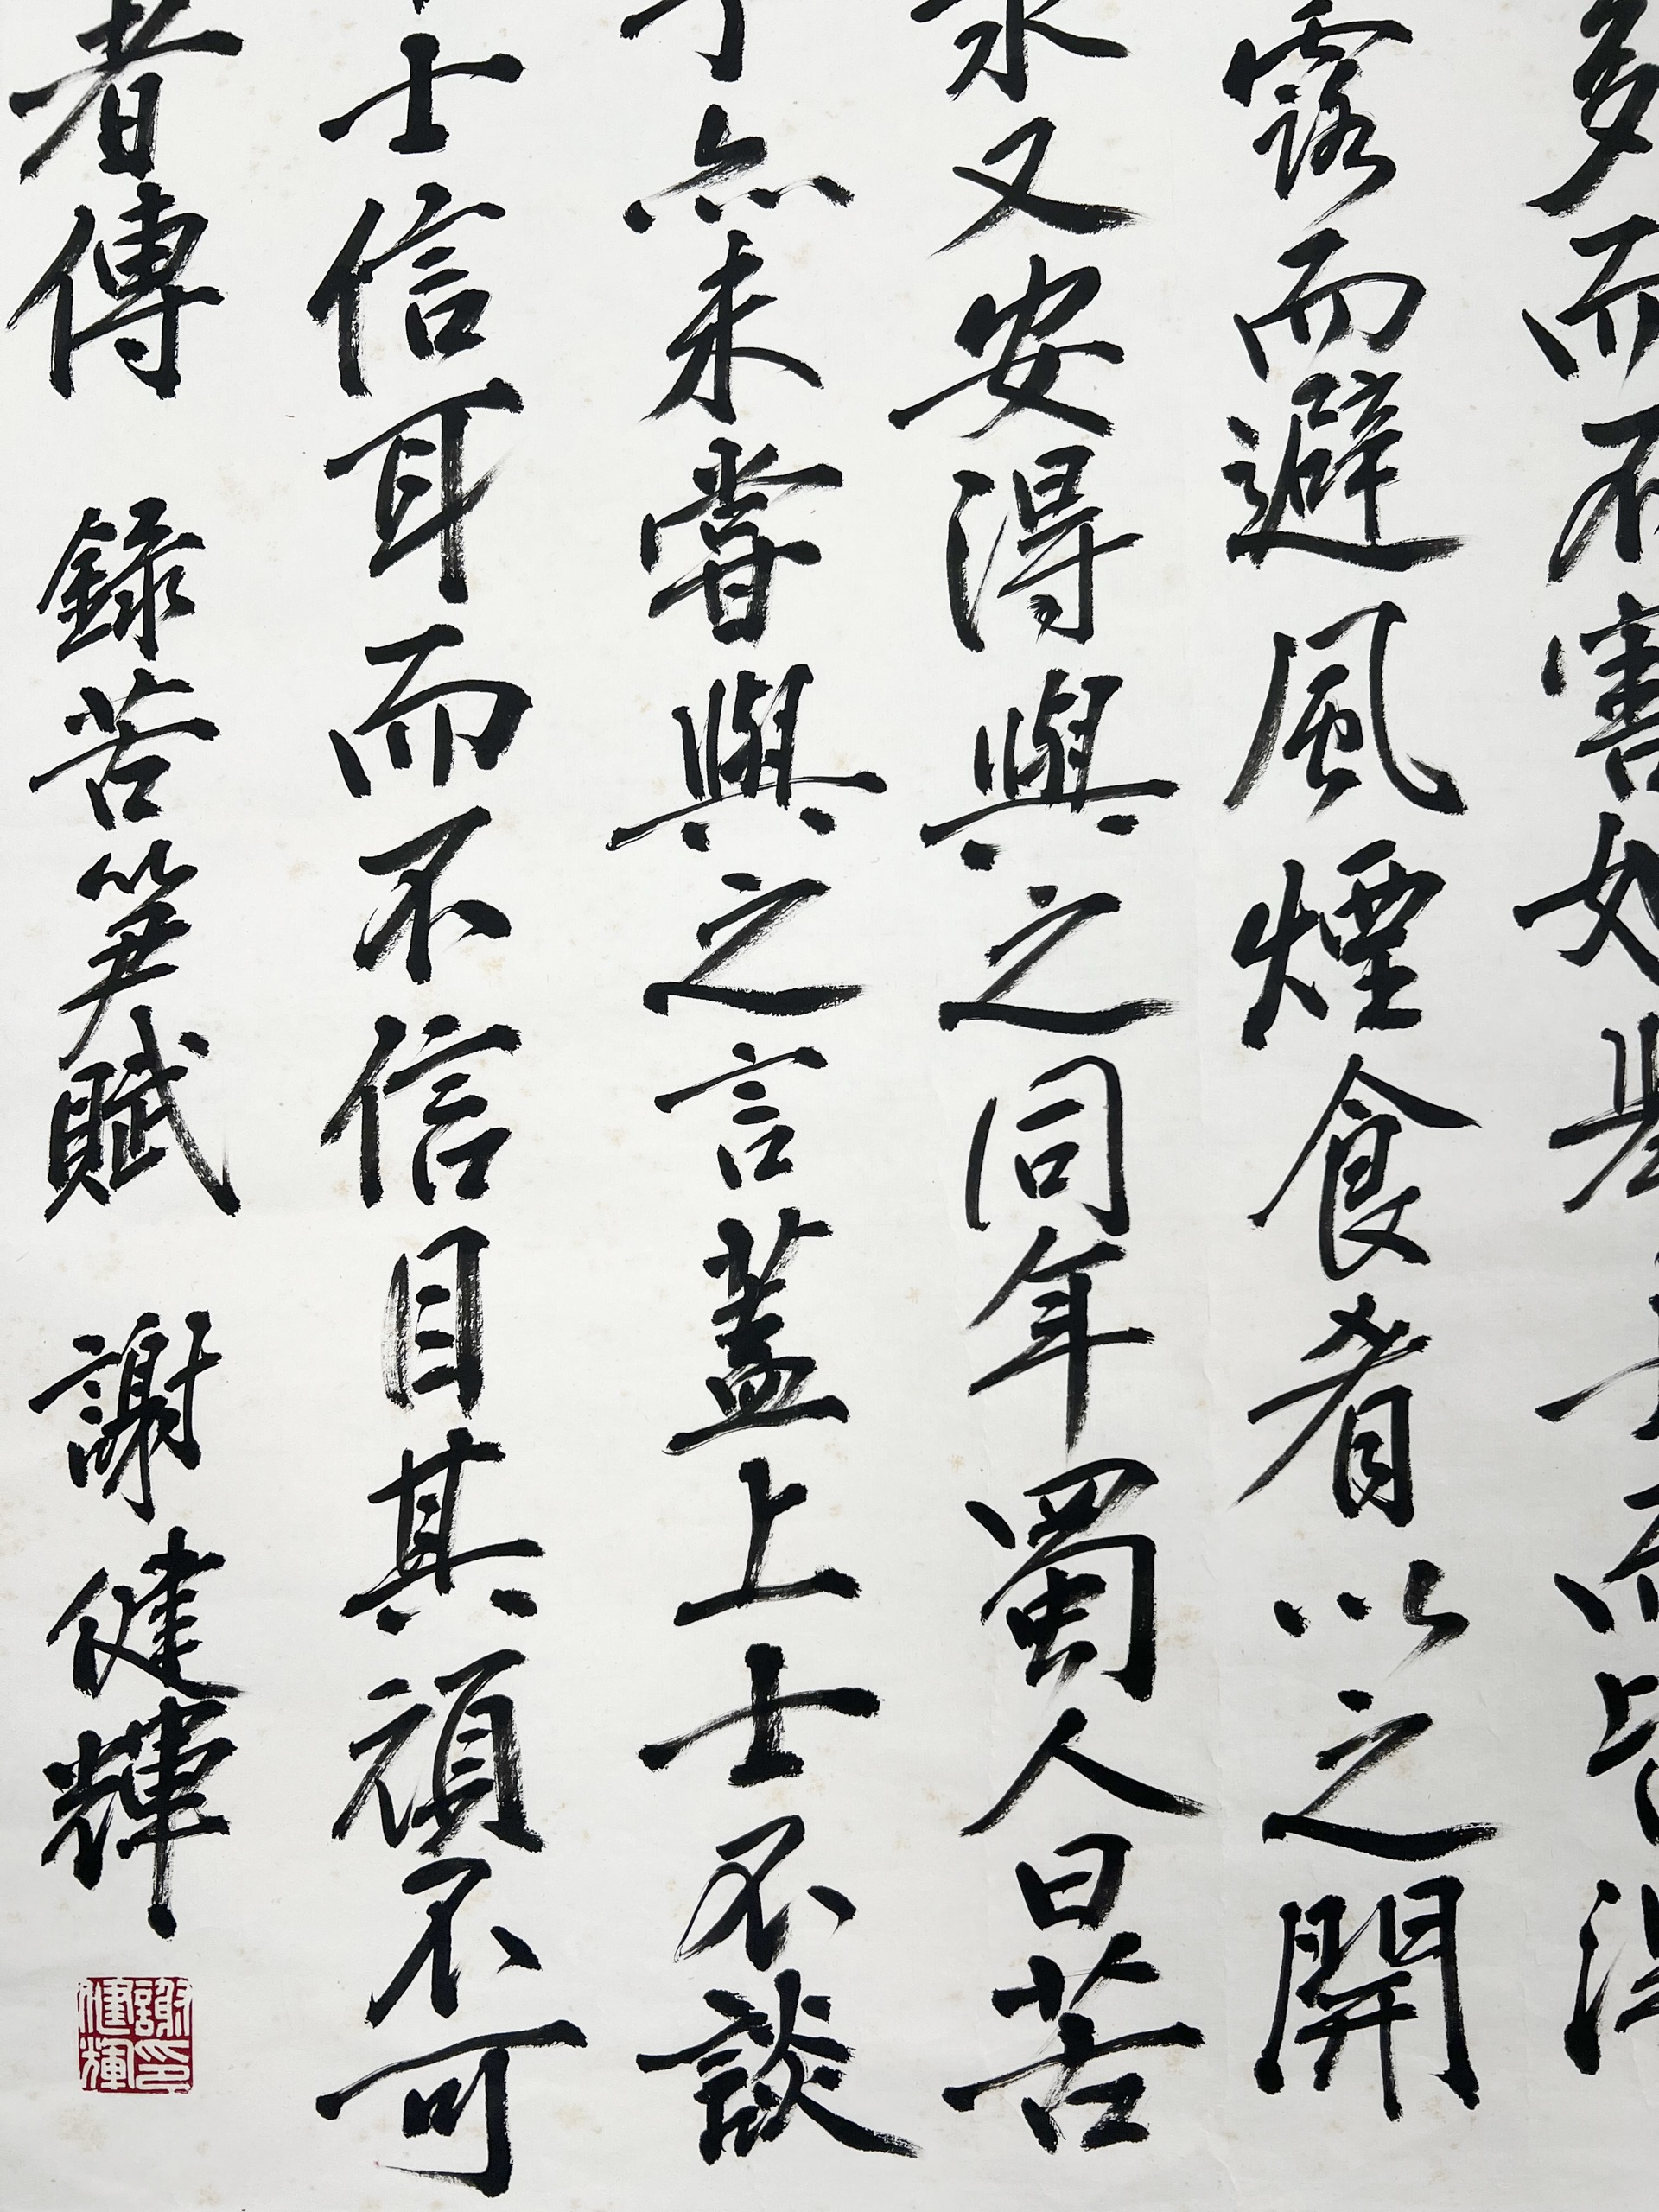 多而不害如舉士而皆得
露而避風煙食肴以之開
汞又安得與之同年蜀人曰苦
予亦未嘗與之言蓋上士不談
士信耳而不信目其頑不可
者傳 錄苦笋賦 謝健輝
謝印健輝